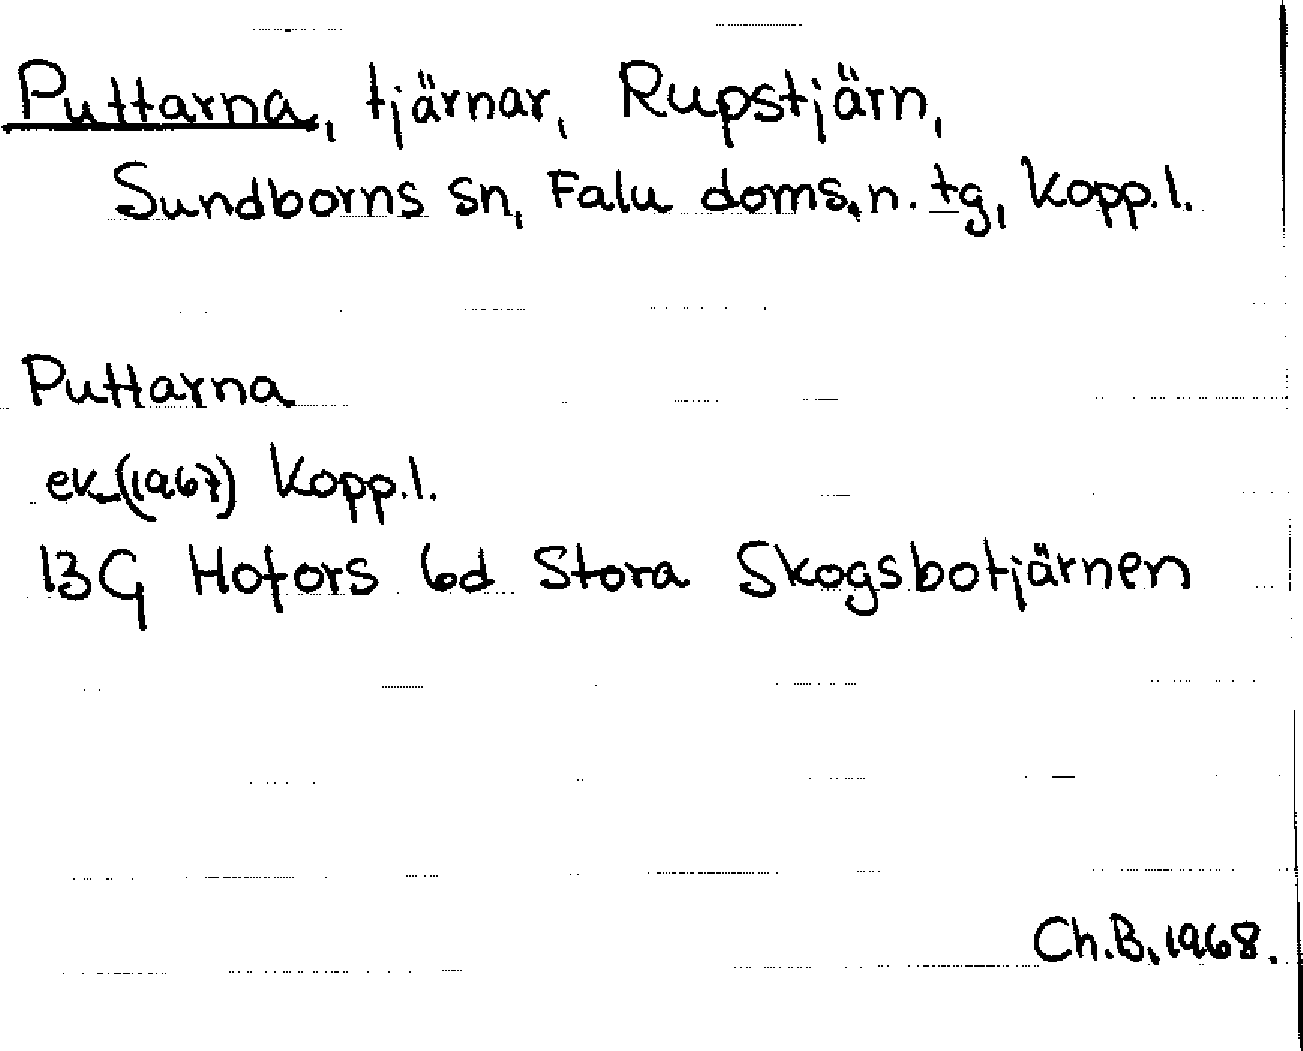 Puttarna, tjärnar, Rupstjärn,
Sundborns sn, Falu doms.n. tg, Kopp.l.
Puttarna
ek (1967) Kopp.l.
13G Hofors 6d Stora Skogsbotjärnen
Ch.B. 1968.